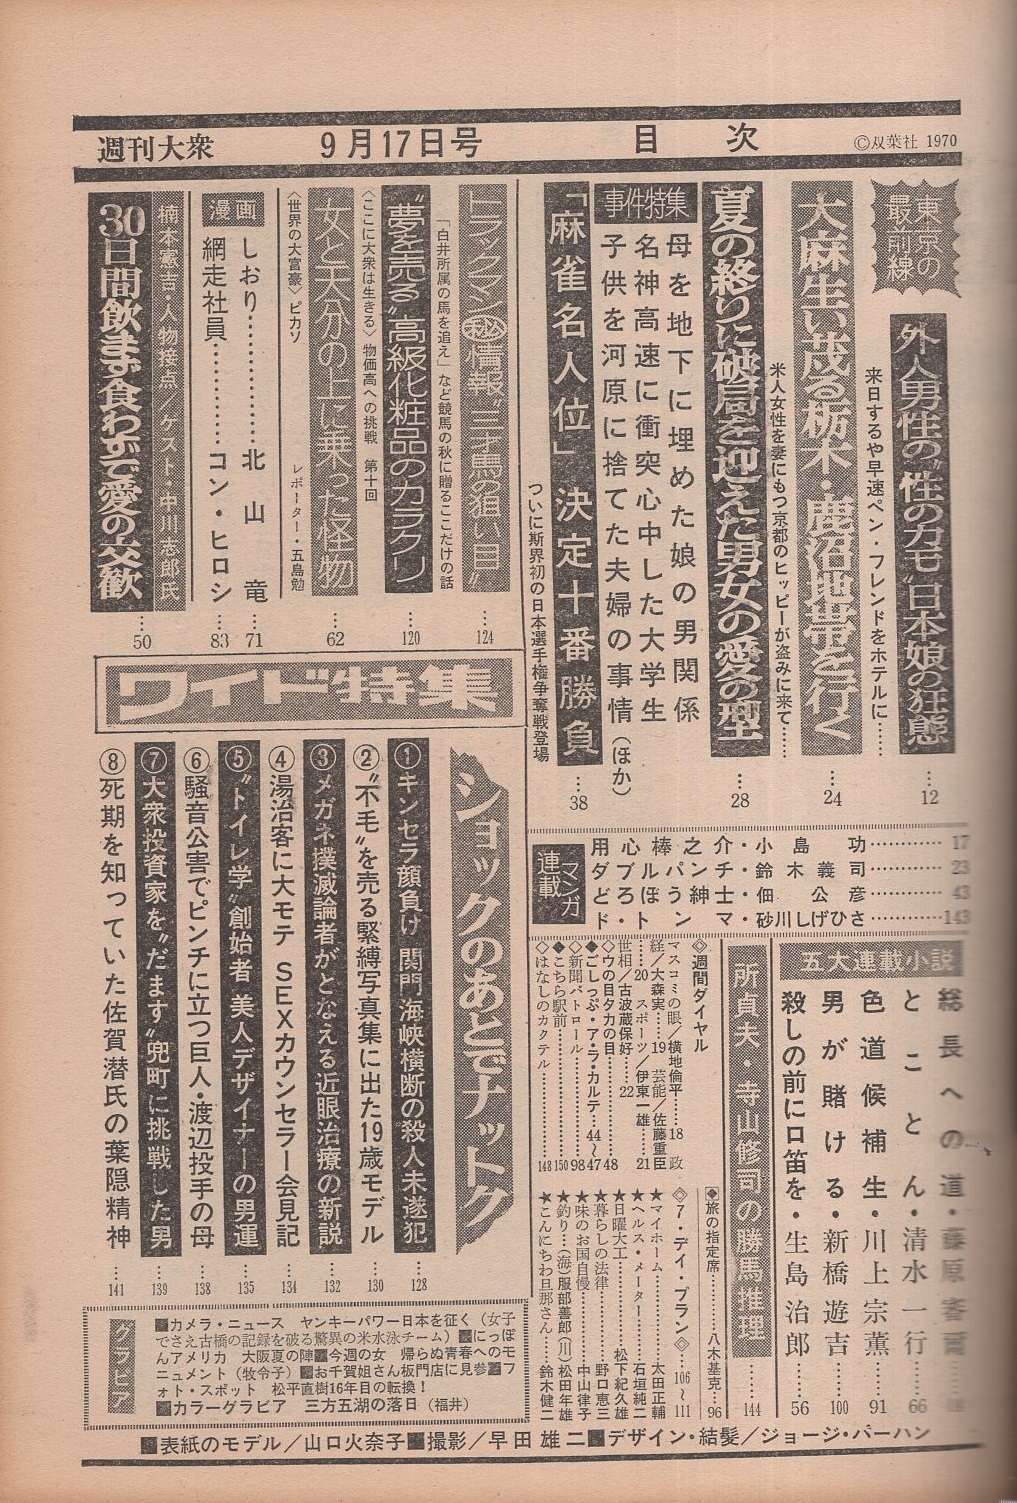 週刊大衆 9月17日号 目次 ©双葉社 1970
東京の最前線
外人男性の"性のカモ"日本娘の狂態……12
来日するや早速ペン・フレンドをホテルに……
大麻生い茂る栃木・鹿沼地帯を行く……24
米人女性を妻にもつ京都のヒッピーが盗みに来て……
夏の終りに破局を迎えた男女の愛の型……28
事件特集
母を地下に埋めた娘の男関係
名神高速に衝突心中した大学生
子供を河原に捨てた夫婦の事情(ほか)
「麻雀名人位」決定十番勝負……38
ついに斯界初の日本選手権争奪戦登場
トラックマン㊙情報"三才馬の狙い目"……124
「白井所属の馬を追え」など競馬の秋に贈るここだけの話
"夢を売る"高級化粧品のカラクリ……120
〈ここに大衆は生きる〉物価高への挑戦 第十回
女と天分の上に乗った怪物……62
〈世界の大富豪〉ピカソ レポーター・五島勉
漫画
しおり……………北山竜……71
網走社員…………コン・ヒロシ……83
楠本憲吉・人物接点/ゲスト・中川志郎氏
30日間飲まず食わずで愛の交歓……50
マンガ連載
用心棒之介・小島功…………17
ダブルパンチ・鈴木義司…………23
どろぼう紳士・佃公彦…………43
ド・トンマ・砂川しげひさ…………143
五大連載小説
総長への道・藤原審爾
とことん・清水一行……66
色道候補生・川上宗薫……91
男が賭ける・新橋遊吉……100
殺しの前に口笛を・生島治郎……56
所貞夫・寺山修司の勝馬推理……144
◇週間ダイヤル
マスコミの眼/横地倫平……18 政
経/大森実……19 芸能/佐藤重臣
……20 スポーツ/伊東一雄……21
世相/古波蔵保好……22
◇ウの目タカの目……48
◆ごしっぷ・ア・ラ・カルテ……44~47
◇新聞パトロール……98
◆こちら駅前……150
◇はなしのカクテル……148
◆旅の指定席……八木基克…96
◇7・デイ・プラン◇…106~111
★マイホーム……太田正輔
★ヘルス・メーター……石垣純二
★日曜大工……松下紀久雄
★暮らしの法律……野口恵三
★味のお国自慢……中山律子
★釣り…(海)服部善郎(川)松田年雄
★こんにちわ旦那さん……鈴木健二
ワイド特集
ショックのあとでナットク
①キンセラ顔負け 関門海峡横断の殺人未遂犯……128
②"不毛"を売る緊縛写真集に出た19歳モデル……130
③メガネ撲滅論者がとなえる近眼治療の新説……132
④湯治客に大モテ SEXカウンセラー会見記……134
⑤"トイレ学"創始者 美人デザイナーの男運……135
⑥騒音公害でピンチに立つ巨人・渡辺投手の母……138
⑦大衆投資家を"だます"兜町に挑戦した男……139
⑧死期を知っていた佐賀潜氏の葉隠精神……141
グラビア
■カメラ・ニュース ヤンキーパワー日本を征く(女子
でさえ古橋の記録を破る驚異の米水泳チーム)■にっぽ
んアメリカ 大阪夏の陣■今週の女 帰らぬ青春へのモ
ニュメント(牧令子)■お千賀姐さん板門店に見参■フ
ォト・スポット 松平直樹16年目の転換!
■カラーグラビア 三方五湖の落日(福井)
■表紙のモデル/山口火奈子■撮影/早田雄二■デザイン・結髪/ジョージ・バーハン